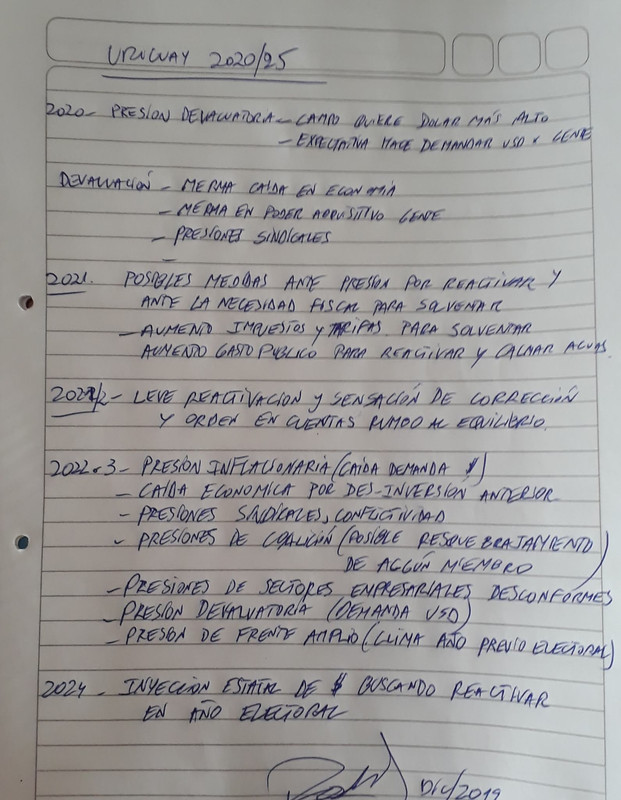 URUGUAY 2020/25
2020- PRESION DEVALUATORIA - CAMPO QUIERE DOLAR MÁS ALTO
- EXPECTATIVA HACE DEMANDAR USD x GENTE
DEVALUACIÓN - MERMA CAÍDA EN ECONOMÍA
- MERMA EN PODER ADQUISITIVO GENTE
- PRESIONES SINDICALES
-
2021. POSIBLES MEDIDAS ANTE PRESIÓN POR REACTIVAR Y
ANTE LA NECESIDAD FISCAL PARA SOLVENTAR
- AUMENTO IMPUESTOS y TARIFAS PARA SOLVENTAR
AUMENTO GASTO PUBLICO PARA REACTIVAR Y CALMAR AGUAS.
2021/2 - LEVE REACTIVACION y SENSACIÓN DE CORRECCIÓN
Y ORDEN EN CUENTAS RUMBO AL EQUILIBRIO.
2022-3- PRESIÓN INFLACIONARIA (CAÍDA DEMANDA $)
- CAÍDA ECONOMICA POR DES-INVERSION ANTERIOR
- PRESIONES SINDICALES, CONFLICTIVIDAD
- PRESIONES DE COALICIÓN (POSIBLE RESQUEBRAJAMIENTO
DE ALGÚN MIEMBRO)
- PRESIONES DE SECTORES EMPRESARIALES DESCONFORMES
- PRESIÓN DEVALUATORIA (DEMANDA USD)
- PRESIÓN DE FRENTE AMPLIO (CLIMA AÑO PREVIO ELECTORAL)
2024 - INYECCIÓN ESTATAL DE $ BUSCANDO REACTIVAR
EN AÑO ELECTORAL
DIC/2019